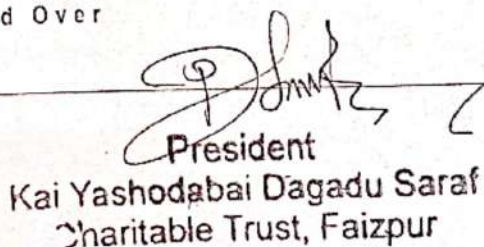 d Over
President
Kai Yashodabai Dagadu Saraf
Charitable Trust, Faizpur